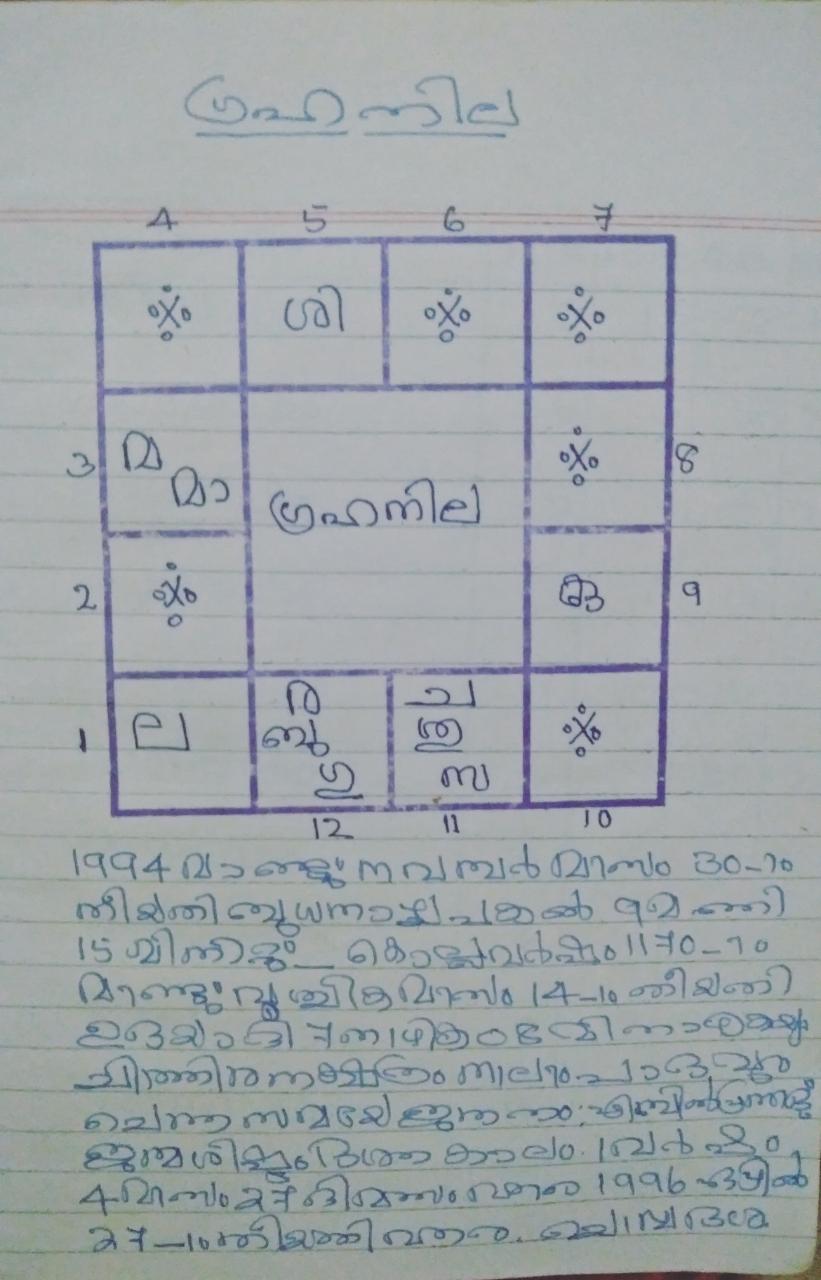 ഗ്രഹനില
4 5 6 7
ശി
3 മ 8
മാ
ഗ്രഹനില
2 ഒ 9
1 ല ര ച
ബു
ഗു സ
12 11 10
1994 മാണ്ടു നവമ്പർ മാസം 30-ാം
തീയതി ബുധനാഴ്ച പകൽ 9 മണി
15 മിനിട്ടു കൊല്ലവർഷം 1170-ാം
മാണ്ടു വൃശ്ചികമാസം 14-ാം തീയതി
ഉദയാദി 7 നാഴിക
ചിത്തിര നക്ഷത്രം നാലാം പാദവും
ചെന്ന സമയേ ജനനം
ജന്മശിഷ്ടം ദശാകാലം 1 വർഷം
4 മാസം 27 ദിവസം 1996 ഏപ്രിൽ
27-ാം തീയതി വരെ ചൊവ്വാദശ